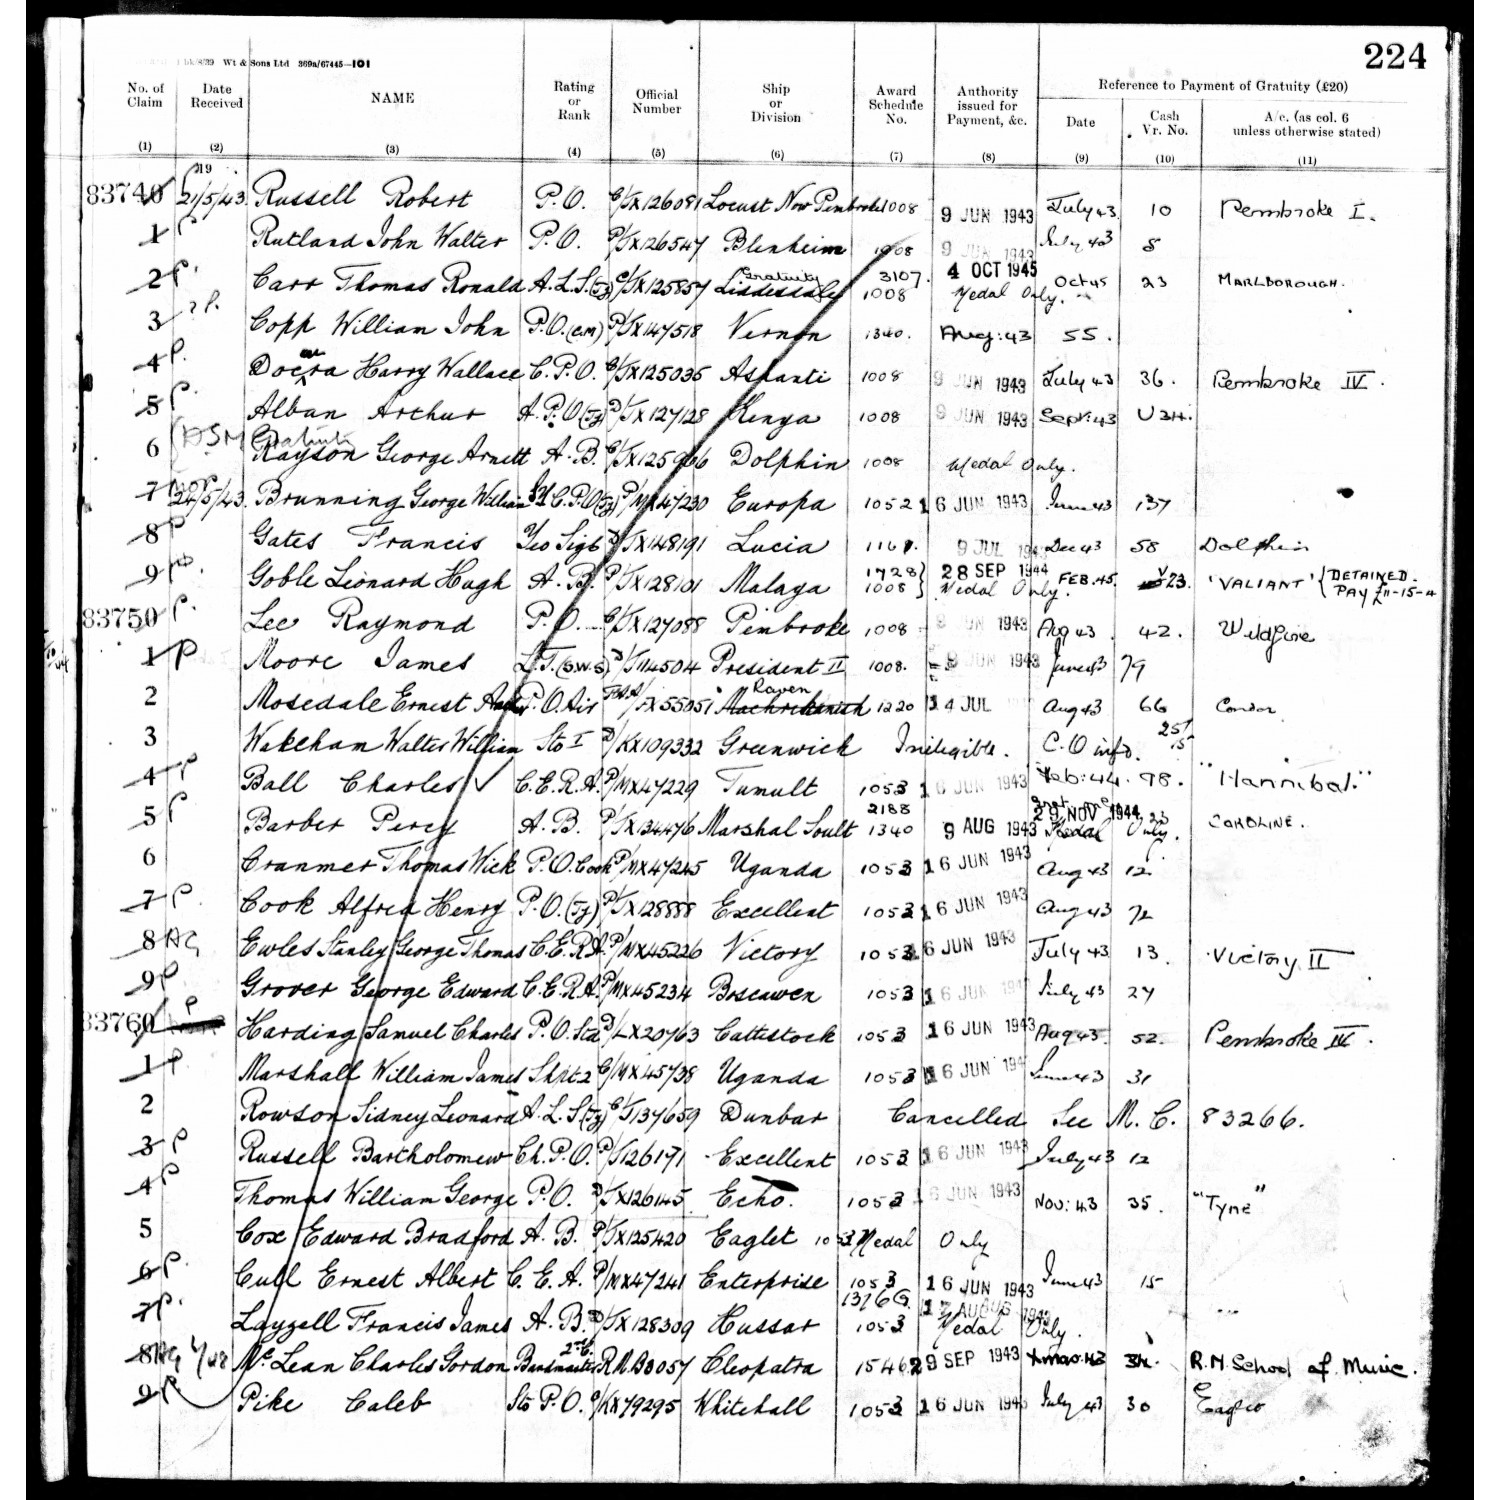 224
Wt & Sons Ltd 369a/67445—101
No. of Claim Date Received NAME Rating or Rank Official Number Ship or Division Award Schedule No. Authority issued for Payment, &c. Reference to Payment of Gratuity (£20)
Date Cash Vr. No. A/c. (as col. 6 unless otherwise stated)
(1) (2) (3) (4) (5) (6) (7) (8) (9) (10) (11)
83740 21/5/43 Russell Robert P.O. C/JX126081 Locust Now Pembroke 1008 9 JUN 1943 July 43 10 Pembroke I.
1 P Rutland John Walter P.O. P/JX126547 Blenheim 1008 9 JUN 1943 July 43 8
2 P. Carr Thomas Ronald A.L.S.(Ty) C/JX125857 Gratuity Liddesdale 3107. 1008 4 OCT 1945 Medal Only. Oct 45 23 MARLBOROUGH.
3 Copp William John P.O.(CM) P/JX147518 Vernon 1340. Aug: 43 55.
4 P. Docwra Harry Wallace C.P.O. C/JX125035 Ashanti 1008 9 JUN 1943 July 43 36. Pembroke IV.
5 P. Alban Arthur A.P.O(Ty) P/JX127128 Kenya 1008 9 JUN 1943 Sept: 43 U34.
6 DSM Gratuity Rayson George Arnett A.B. C/JX125966 Dolphin 1008 Medal Only.
7 24/5/43. Brunning George William C.P.O(Ty) P/MX47230 Europa 1052 16 JUN 1943 June 43 137
8 P Gates Francis Yeo Sigs D/JX148191 Lucia 1161. 9 JUL 1943 Dec 43 58 Dolphin
9 P. Goble Leonard Hugh A.B. P/JX128101 Malaga 1728 1008 28 SEP 1944 Medal Only. FEB.45. V23. 'VALIANT' (DETAINED PAY £11-15-4
83750 P. Lee Raymond P.O. C/JX127088 Pembroke 1008 9 JUN 1943 Aug 43 42. Wildfire
1 P Moore James L.T.(S.W.S) D/J114504 President II 1008. 9 JUN 1943 June 43 79
2 Mosedale Ernest P.O. Air FAA/FX55051 Raven Machrihanish 1220 14 JUL Aug 43 66 Condor
3 Wakeham Walter William Sto I D/KX109332 Greenwich Ineligible. C.O info. 25/15
4 P Ball Charles C.E.R.A. P/MX47229 Tumult 1053 16 JUN 1943 Feb: 44. 98. "Hannibal."
5 P Barber Percy A.B. P/JX134476 Marshal Soult 2188 1340 9 AUG 1943 29 NOV 1944 Medal Only. 23 CAROLINE.
6 Cranmer Thomas Wick P.O. Cook P/MX47245 Uganda 1053 16 JUN 1943 Aug 43 12
7 P. Cook Alfred Henry P.O.(Ty) P/JX128888 Excellent 1053 16 JUN 1943 Aug 43 72
8 AG Ewles Stanley George Thomas C.E.R.A. P/MX45226 Victory 1053 16 JUN 1943 July 43 13. Victory II
9 P. Grover George Edward C.E.R.A. P/MX45234 Boscawen 1053 16 JUN July 43 27
83760 P Harding Samuel Charles P.O. Std D/LX20763 Cattistock 1053 16 JUN 1943 Aug 43 52. Pembroke IV.
1 P. Marshall William James Shpt 2 C/MX45738 Uganda 1053 16 JUN 194 June 43 31
2 Rowson Sidney Leonard A.L.S(Ty) C/J137659 Dunbar Cancelled See M.C. 83266.
3 P Russell Bartholomew Ch.P.O. P/J126171 Excellent 1053 16 JUN 1943 July 43 12
4 P Thomas William George P.O. D/JX126145 Echo. 1053 16 JUN 1943 Nov: 43 35. "Tyne"
5 Cox Edward Bradford A.B. P/JX125420 Eaglet 1053 Medal Only
6 P. Cull Ernest Albert C.E.A. P/MX47241 Enterprise 1053 16 JUN 1943 June 43 15
7 P. Layzell Francis James A.B. D/JX128309 Hussar 1376G. 1053 17 AUGUS 1943 Medal Only.
8 AG McLean Charles Gordon Bandmaster 2nd C. R.M.B3057 Cleopatra 1546 29 SEP 1943 Xmas 43 34. R.M. School of Music.
9 P Pike Caleb Sto P.O. C/KX79295 Whitehall 1053 16 JUN 1943 July 43 30 Eaglet